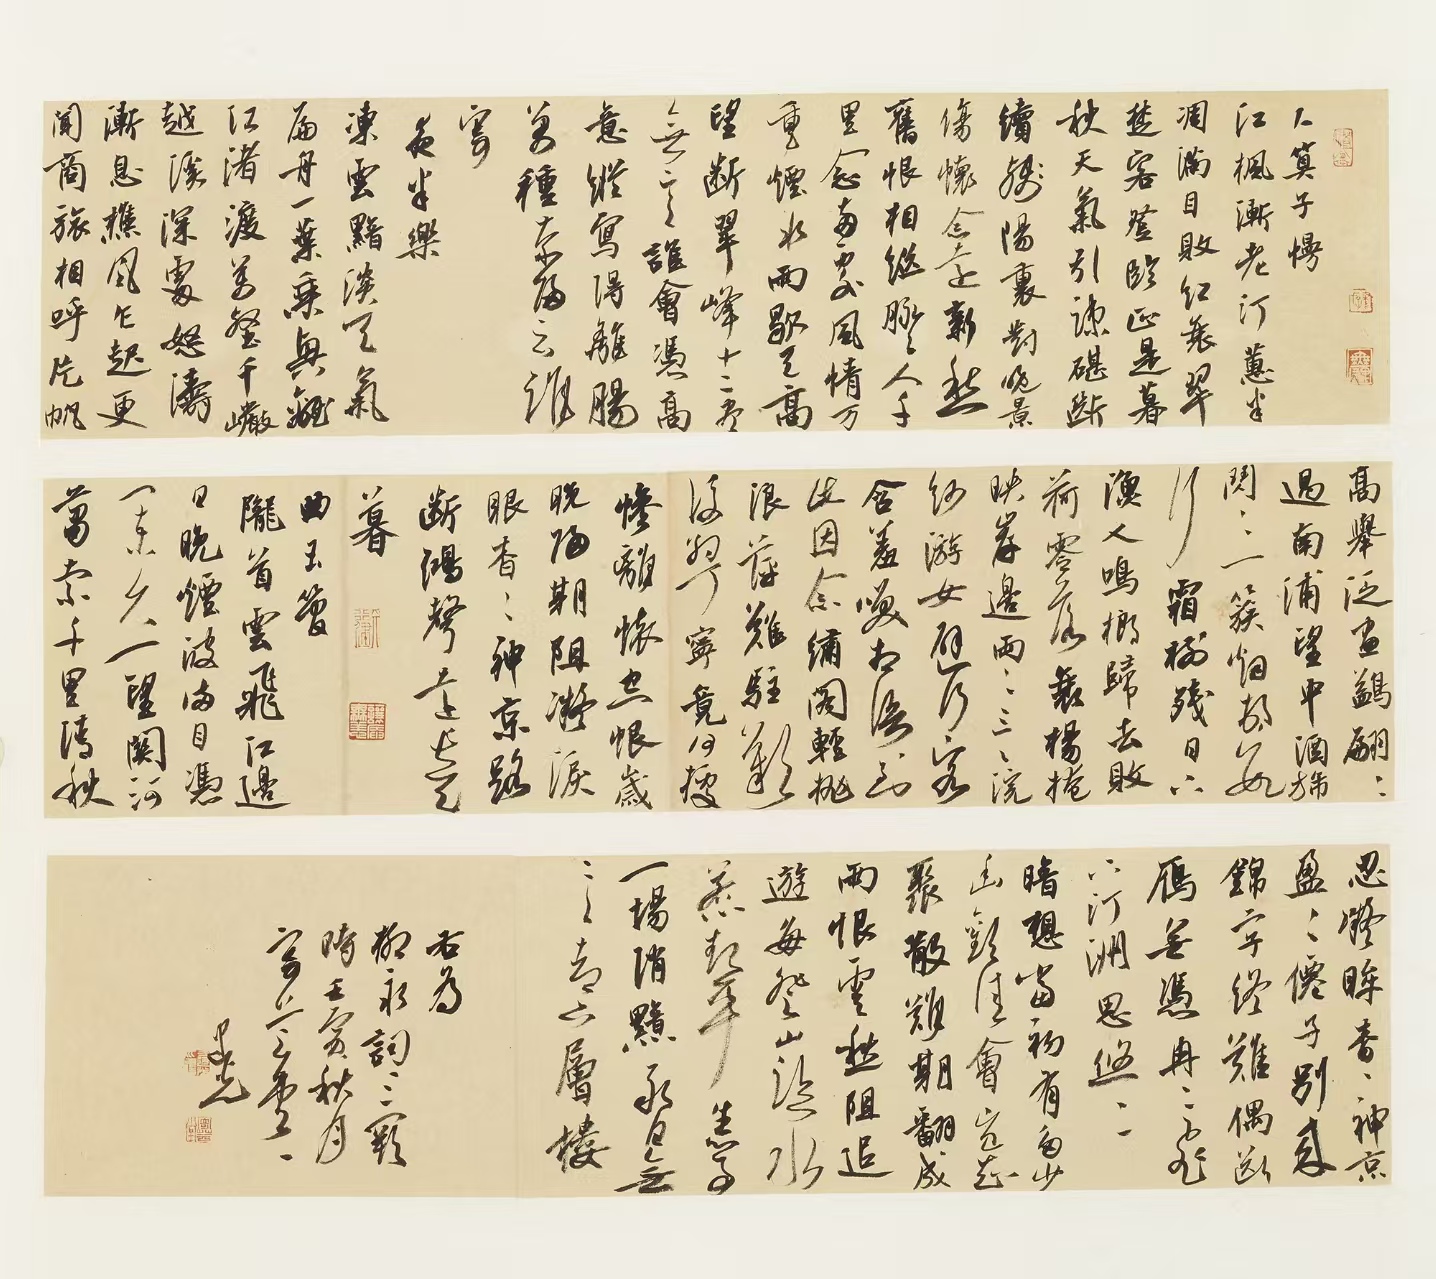 卜算子慢
江楓漸老汀蕙半
凋滿目敗紅衰翠
楚客登臨正是暮
秋天氣引疎砧斷
續殘陽裏對晚景
傷懷念遠新愁
舊恨相繼脈〻人千
里念兩處風情万
重煙水雨歇天高
望斷翠峰十二盡
無言誰會憑高
意縱寫得離腸
萬種奈歸雲誰
寄
夜半樂
凍雲黯淡天氣
扁舟一葉乘興離
江渚渡萬壑千巖
越溪深處怒濤
漸息樵風乍起更
聞商旅相呼片帆
高舉泛畫鷁翩〻
過南浦望中酒旆
閃〻一簇烟村數
行霜樹殘日下
漁人鳴榔歸去敗
荷零落衰楊掩
映岸邊兩〻三〻浣
紗游女避行客
含羞笑相語到
此因念繡閣輕拋
浪萍難駐歎
後約丁寧竟何據
慘離懷空恨歲
晚歸期阻凝淚
眼杳〻神京路
斷鴻聲遠長天
暮
曲玉管
隴首雲飛江邊
日晚煙波滿目憑
闌久一望關河
蕭索千里清秋
忍凝眸杳〻神京
盈〻僊子別來
錦字終難偶斷
雁無憑冉〻飛
下汀洲思悠〻
暗想當初有多少
幽歡佳會豈知
聚散難期翻成
雨恨雲愁阻追
遊每登山臨水
惹起平生心事
一場消黯永日無
言卻下層樓
右為
柳永詞三闋
時壬寅秋月